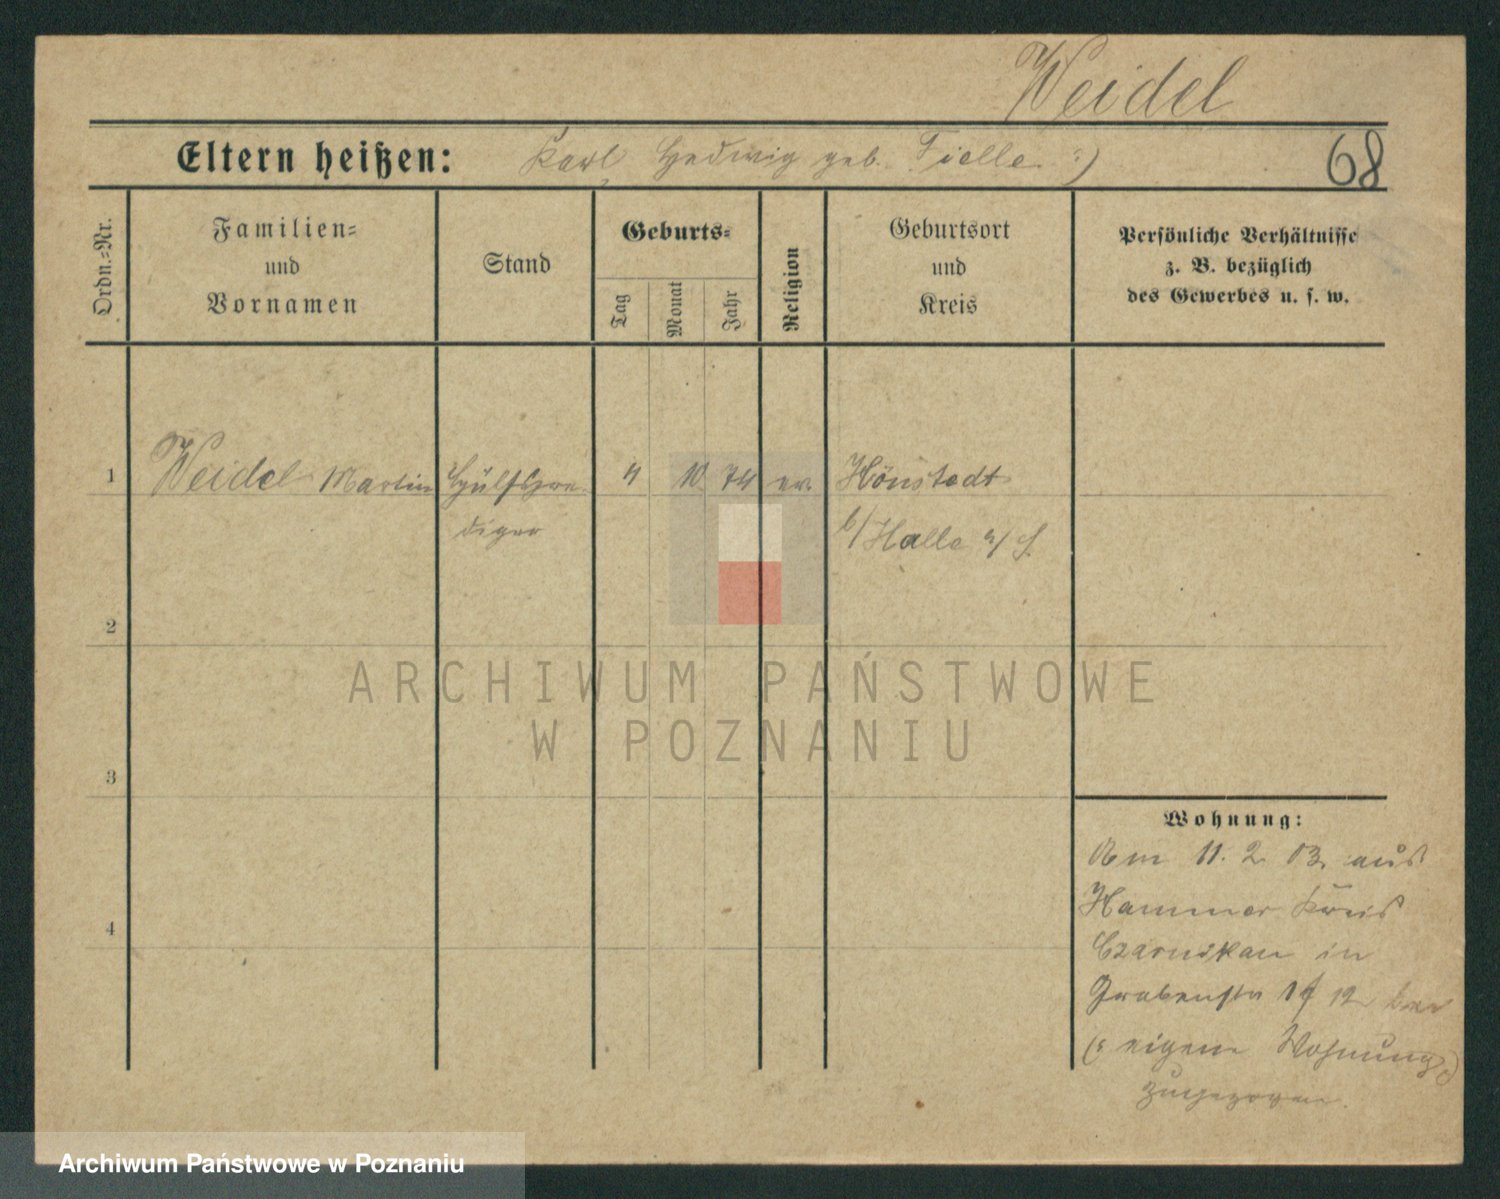 Weidel
Eltern heißen: Karl, Hedwig geb. :)
68
Ordn.=Nr.
Familien=
und
Vornamen
Stand
Geburts=
Tag
Monat
Jahr
Religion
Geburtsort
und
Kreis
Persönliche Verhältnisse
z. B. bezüglich
des Gewerbes u. s. w.
1 Weidel Martin Hülfspre 4 10 74 ev. Hönstedt
diger b/Halle a/S.
2
3
4
Wohnung:
Am 11. 2. 03. aus
Hammer Kreis
Czarnikau in
Grabenstr 12
(: eigene Wohnung :)
zugezogen.
ARCHIWUM PAŃSTWOWE
W POZNANIU
Archiwum Państwowe w Poznaniu